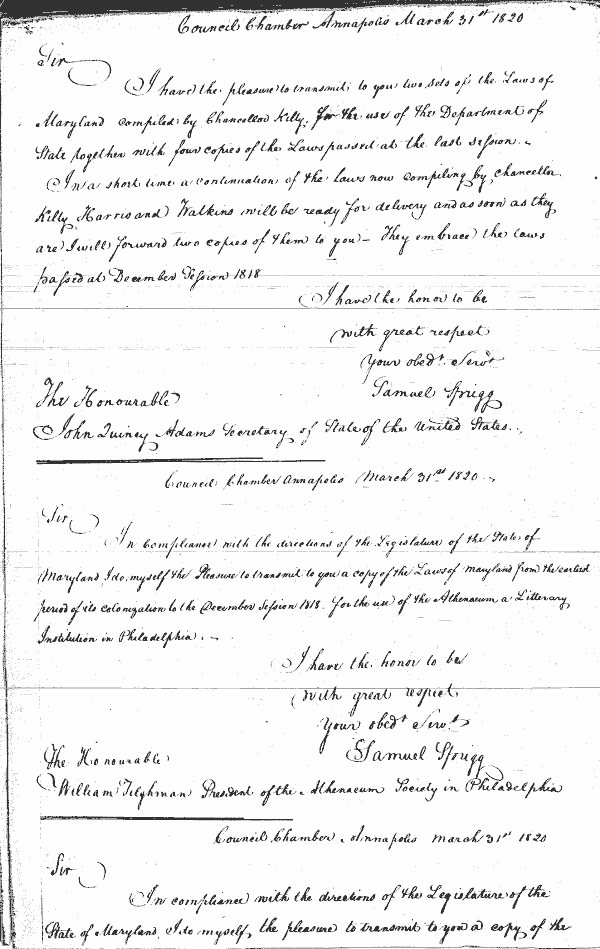 Council Chamber Annapolis March 31st 1820
Sir
I have the pleasure to transmit to you two sets of the Laws of
Maryland compiled by Chancellor Kilty, for the use of the Department of
State together with four copies of the Laws passed at the last session.
In a short time a continuation of the laws now compiling by chancellor
Kilty Harris and Watkins will be ready for delivery and as soon as they
are I will forward two copies of them to you - They embrace the laws
passed at December Session 1818
I have the honor to be
with great respect
Your obedt. Servt
Samuel Sprigg
The Honourable
John Quincy Adams Secretary of State of the United States.
Council Chamber Annapolis March 31st 1820
Sir
In Compliance with the directions of the Legislature of the State of
Maryland I do myself the Pleasure to transmit to you a copy of the Laws of maryland from the earliest
period of its colonization to the December Session 1818. for the use of the Athenaeum a Litterary
Institution in Philadelphia.
I have the honor to be
with great respect
Your obedt Servt
Samuel Sprigg
The Honourable
William Tilghman President of the Athenaeum Society in Philadelphia
Council Chamber Annapolis March 31st 1820
Sir
In compliance with the directions of the Legislature of the
State of Maryland I do myself the pleasure to transmit to you a copy of the